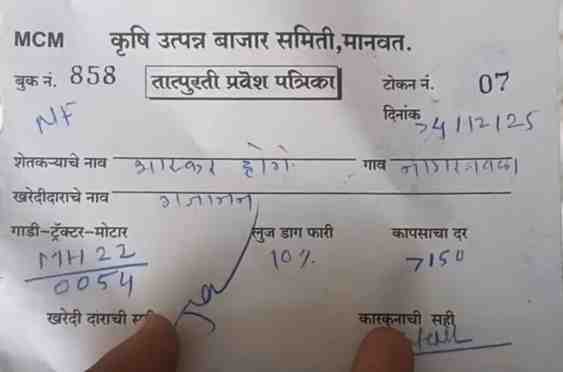 MCM कृषि उत्पन्न बाजार समिती,मानवत.
बुक नं. 858 तात्पुरती प्रवेश पत्रिका टोकन नं. 07
NF दिनांक 24/12/25
शेतकऱ्याचे नाव भास्कर होगे गाव
खरेदीदाराचे नाव गजानन
गाडी-ट्रॅक्टर-मोटार लुज डाग फारी कापसाचा दर
MH22 10% 7150
0054
खरेदी दाराची कारकुनाची सही